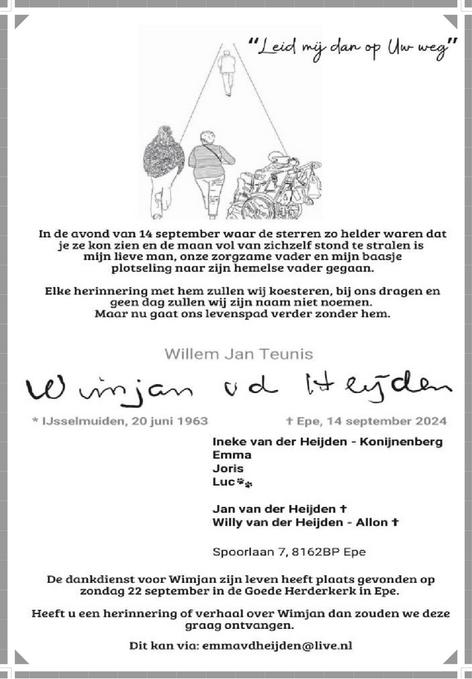 “Leid mij dan op Uw weg”
In de avond van 14 september waar de sterren zo helder waren dat
je ze kon zien en de maan vol van zichzelf stond te stralen is
mijn lieve man, onze zorgzame vader en mijn baasje
plotseling naar zijn hemelse vader gegaan.
Elke herinnering met hem zullen wij koesteren, bij ons dragen en
geen dag zullen wij zijn naam niet noemen.
Maar nu gaat ons levenspad verder zonder hem.
Willem Jan Teunis
Wimjan vd Heijden
* IJsselmuiden, 20 juni 1963 † Epe, 14 september 2024
Ineke van der Heijden - Konijnenberg
Emma
Joris
Luc🐾
Jan van der Heijden †
Willy van der Heijden - Allon †
Spoorlaan 7, 8162BP Epe
De dankdienst voor Wimjan zijn leven heeft plaats gevonden op
zondag 22 september in de Goede Herderkerk in Epe.
Heeft u een herinnering of verhaal over Wimjan dan zouden we deze
graag ontvangen.
Dit kan via: emmavdheijden@live.nl